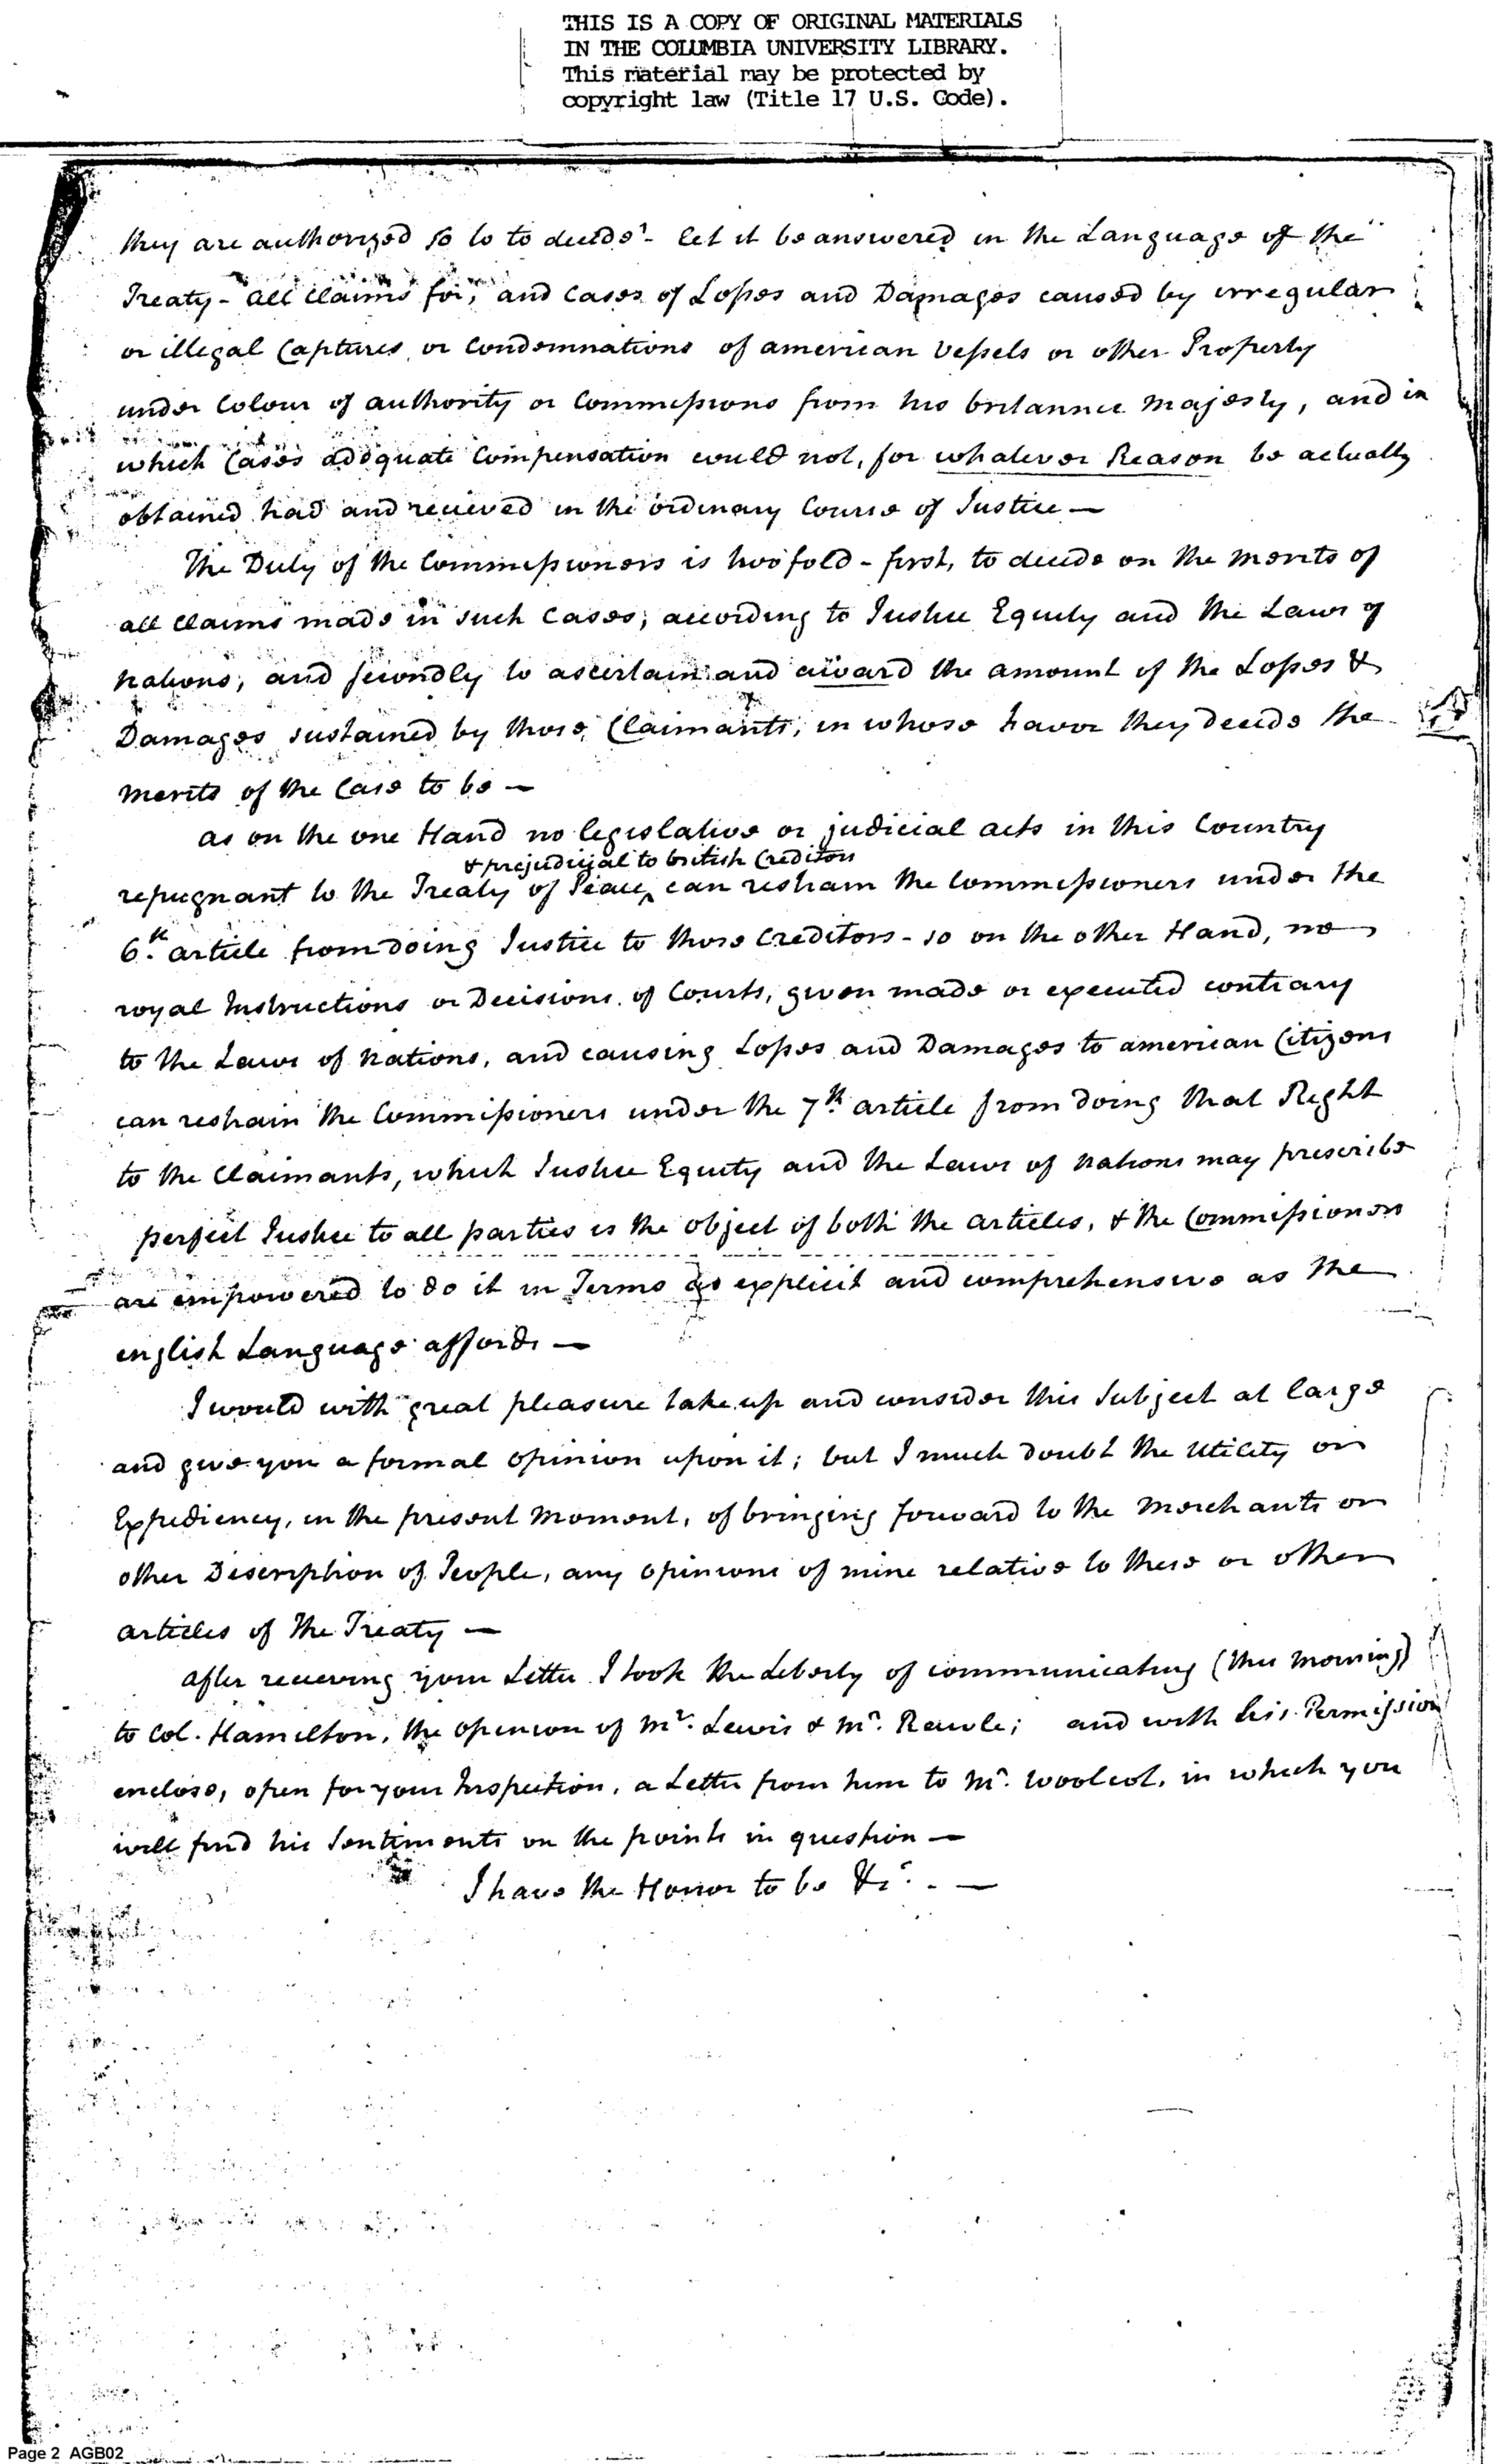 THIS IS A COPY OF ORIGINAL MATERIALS
IN THE COLUMBIA UNIVERSITY LIBRARY.
This material may be protected by
copyright law (Title 17 U.S. Code).
they are authorized so to to decide? - let it be answered in the Language of the
Treaty - all claims for, and Cases of Losses and Damages caused by irregular
or illegal Captures or Condemnations of american Vessels or other Property
under Colour of authority or Commissions from his britannic majesty, and in
which Cases adequate Compensation could not, for whatever Reason be actually
obtained had and recieved in the ordinary Course of Justice —
The Duty of the Commissioners is twofold - first, to decide on the merits of
all claims made in such Cases, according to Justice Equity and the Laws of
nations, and secondly to ascertain and award the amount of the Losses &
Damages sustained by those Claimants, in whose favor they decide the
merits of the Case to be —
as on the one Hand no legislative or judicial acts in this Country
& prejudicial to british Creditors
repugnant to the Treaty of Peace, can restrain the Commissioners under the
6th. article from doing Justice to those Creditors - so on the other Hand, no
royal Instructions or Decisions of Courts, given made or executed contrary
to the Laws of nations, and causing Losses and Damages to american Citizens
can restrain the Commissioners under the 7th. article from doing that Right
to the Claimants, which Justice Equity and the Laws of nations may prescribe
perfect Justice to all parties is the object of both the articles, & the Commissioners
are empowered to do it in Terms as explicit and comprehensive as the
english Language affords —
I would with great pleasure take up and consider this Subject at large
and give you a formal opinion upon it; but I much doubt the Utility or
Expediency, in the present moment, of bringing forward to the merchants or
other Description of People, any opinions of mine relative to these or other
articles of the Treaty —
after receiving your Letter I took the Liberty of communicating (this morning)
to Col. Hamilton, the opinion of Mr. Lewis & Mr. Rawle; and with his Permission
enclose, open for your Inspection, a Letter from him to Mr. Woolcot, in which you
will find his Sentiments on the points in question —
I have the Honor to be &c. . —
Page 2 AGB02